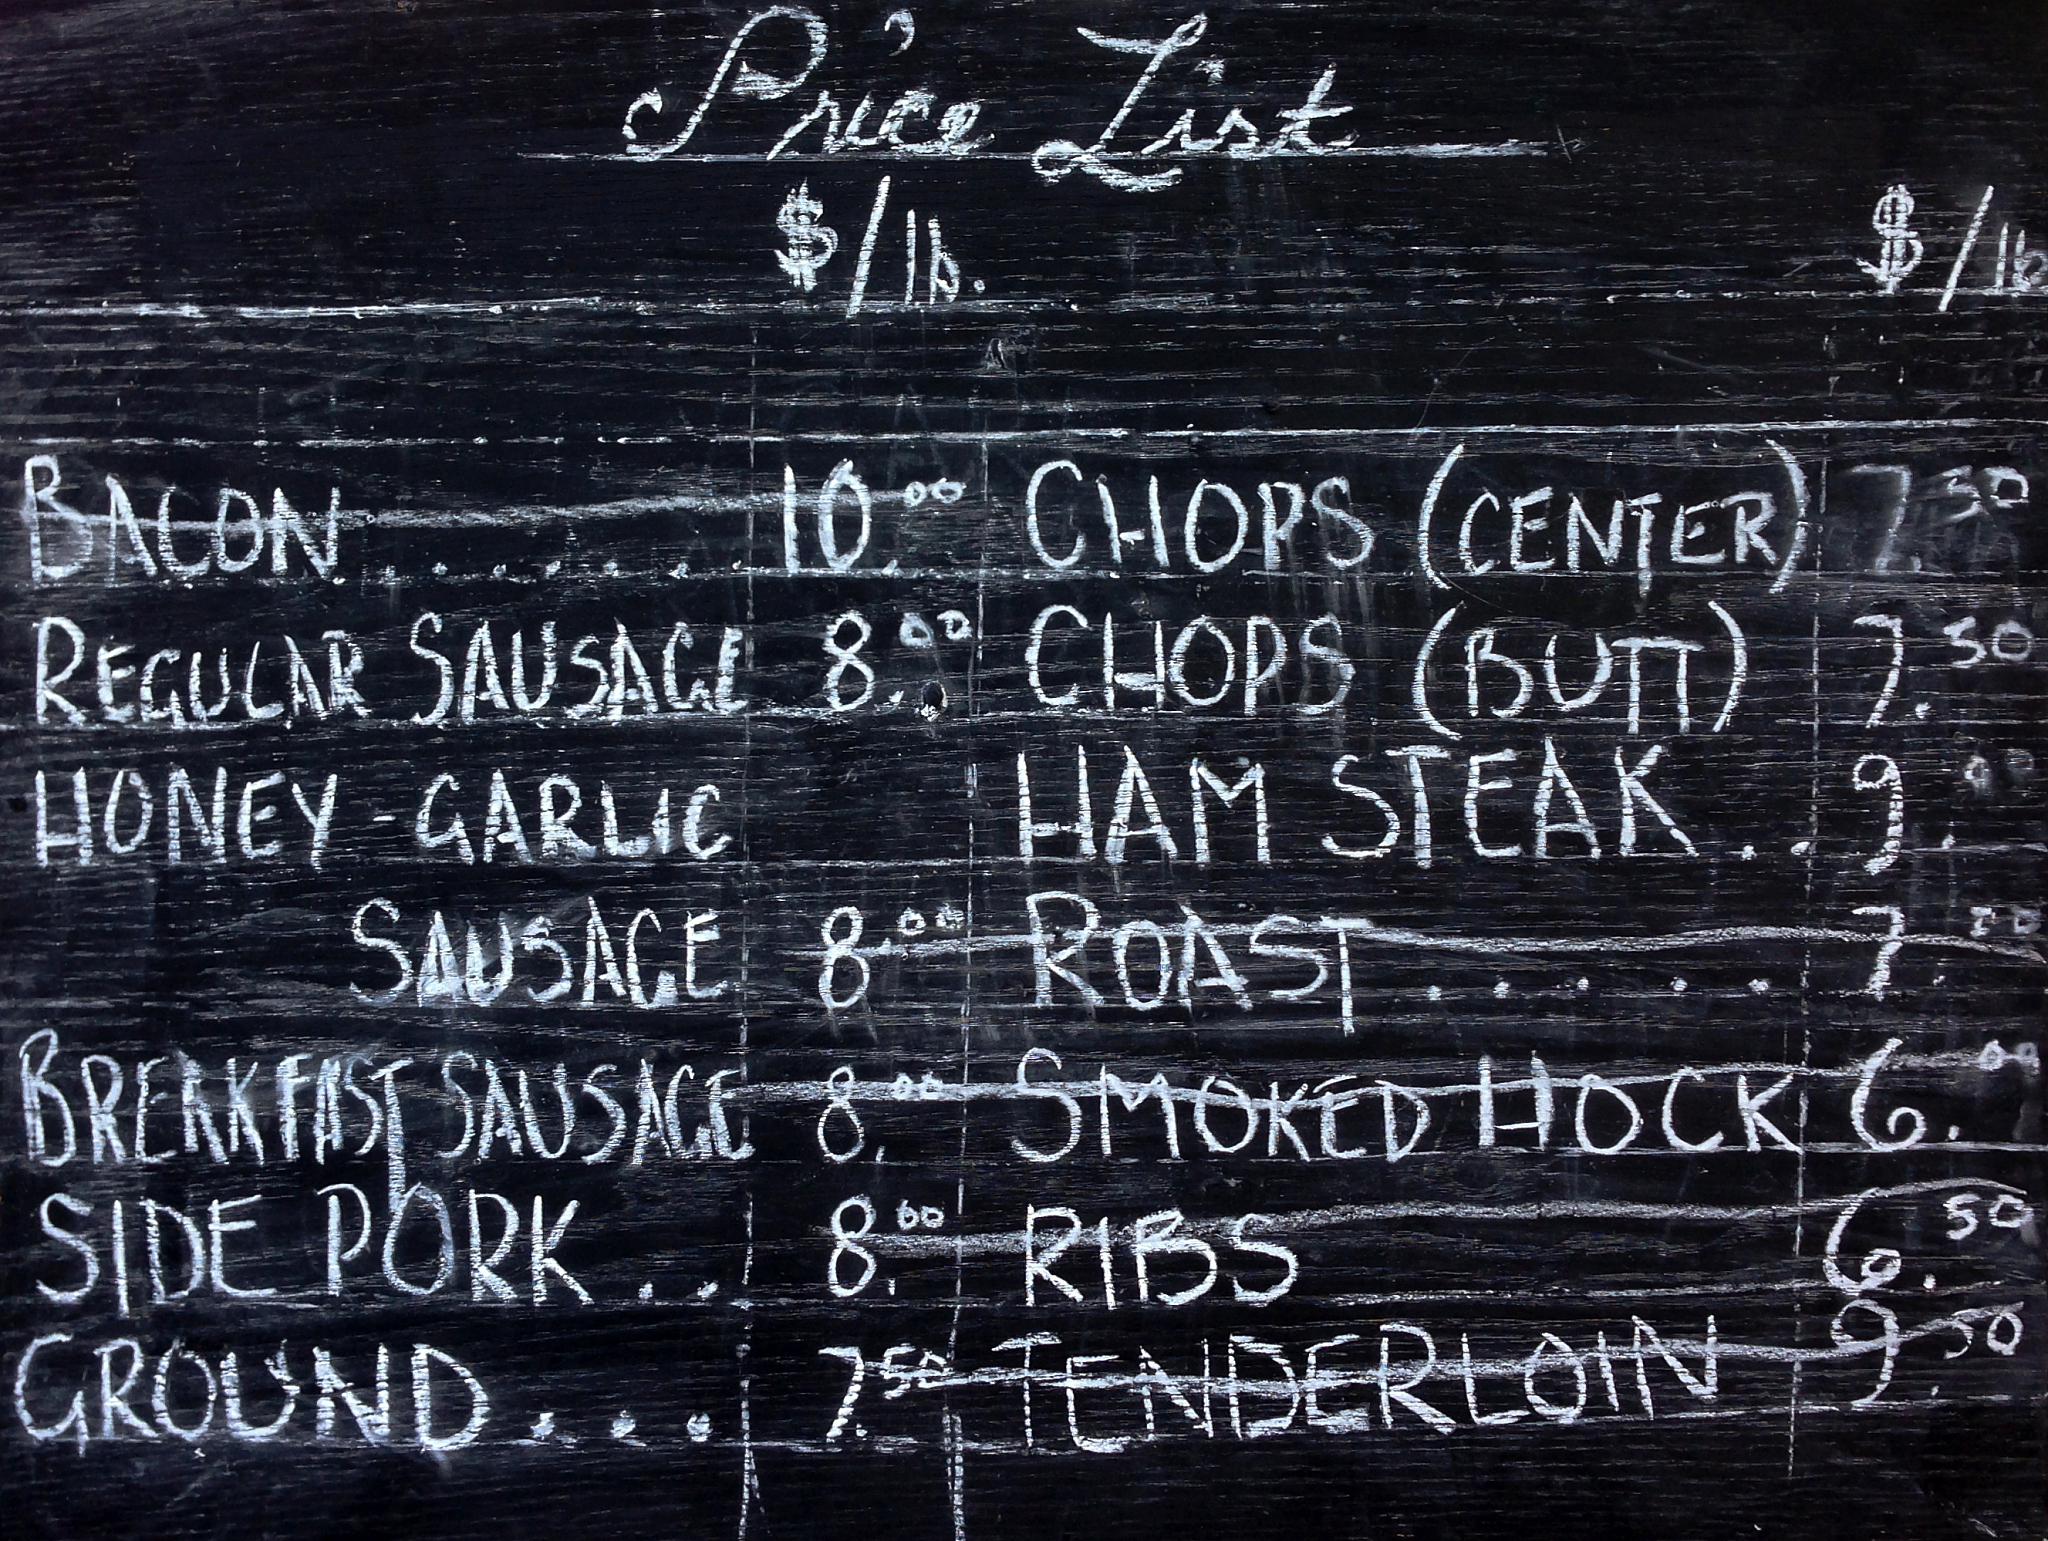 Price List
$/lb.
$/lb
BACON ........ 10.00
REGULAR SAUSAGE 8.00
HONEY-GARLIC
SAUSAGE 8.00
BREAKFAST SAUSAGE 8.00
SIDE PORK... 8.00
GROUND.... 7.50
CHOPS (CENTER) 7.50
CHOPS (BUTT) 7.50
HAM STEAK.. 9.00
ROAST...... 7.00
SMOKED HOCK 6.00
RIBS 6.50
TENDERLOIN 9.50